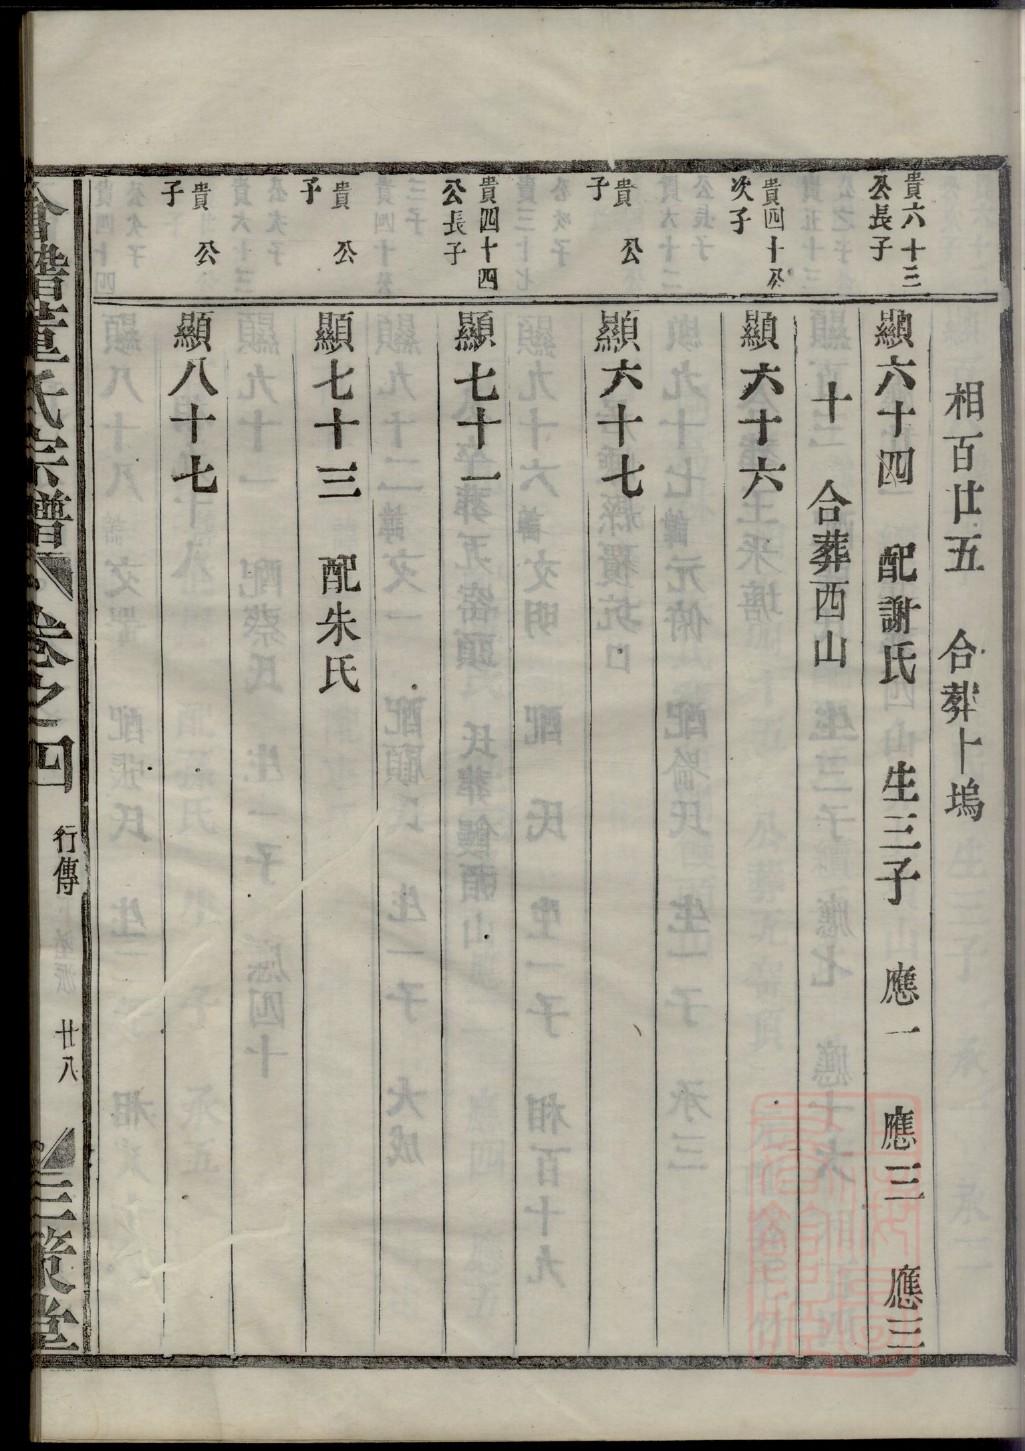 相百廿五 合葬卜塢
貴六十三
公長子
顯六十四 配謝氏 生三子 應一 應三 應三
十 合葬西山
貴四十公
次子
顯六十六
貴 公
子
顯六十七
貴四十四
公長子
顯七十一
貴 公
子
顯七十三 配朱氏
貴 公
子
顯八十七
會稽董氏宗譜 卷之四 行傳 廿八 三策堂